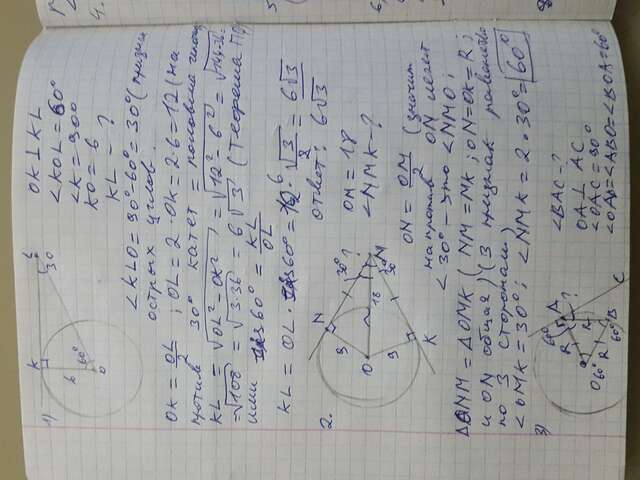 4.
1)
K
L
30
6
60°
O
OK ⊥ KL
<KOL = 60°
<K = 90°
KO = 6
KL - ?
<KLO = 90°-60° = 30° (
острых углов
OK = OL/2 ; OL = 2·OK = 2·6 = 12 (на
против 30° катет = половина
KL = √(OL² - OK²) = √(12² - 6²) =
= √108 = √3·36 = 6√3 (Теорема
или 60° = KL/OL
KL = OL · 60° = 12 · √3/2 = 6√3
ответ: 6√3
2.
N
9
30°
?
18
O
M
9
30°
K
OM = 18
<NMK - ?
ON = OM/2 (значит
напротив ON лежит
<30° - это <NMO ;
ΔONM = ΔOMK (NM = MK ; ON = OK = R ;
и ON общая) (3 признак равенства
по 3 сторонам)
<OMK = 30° ; <NMK = 2·30° = 60°
3)
60°
A
?
R
O
60°
R
B
C
<BAC - ?
OA ⊥ AC
<OAC = 90°
<OAB = <ABO = <BOA = 60°